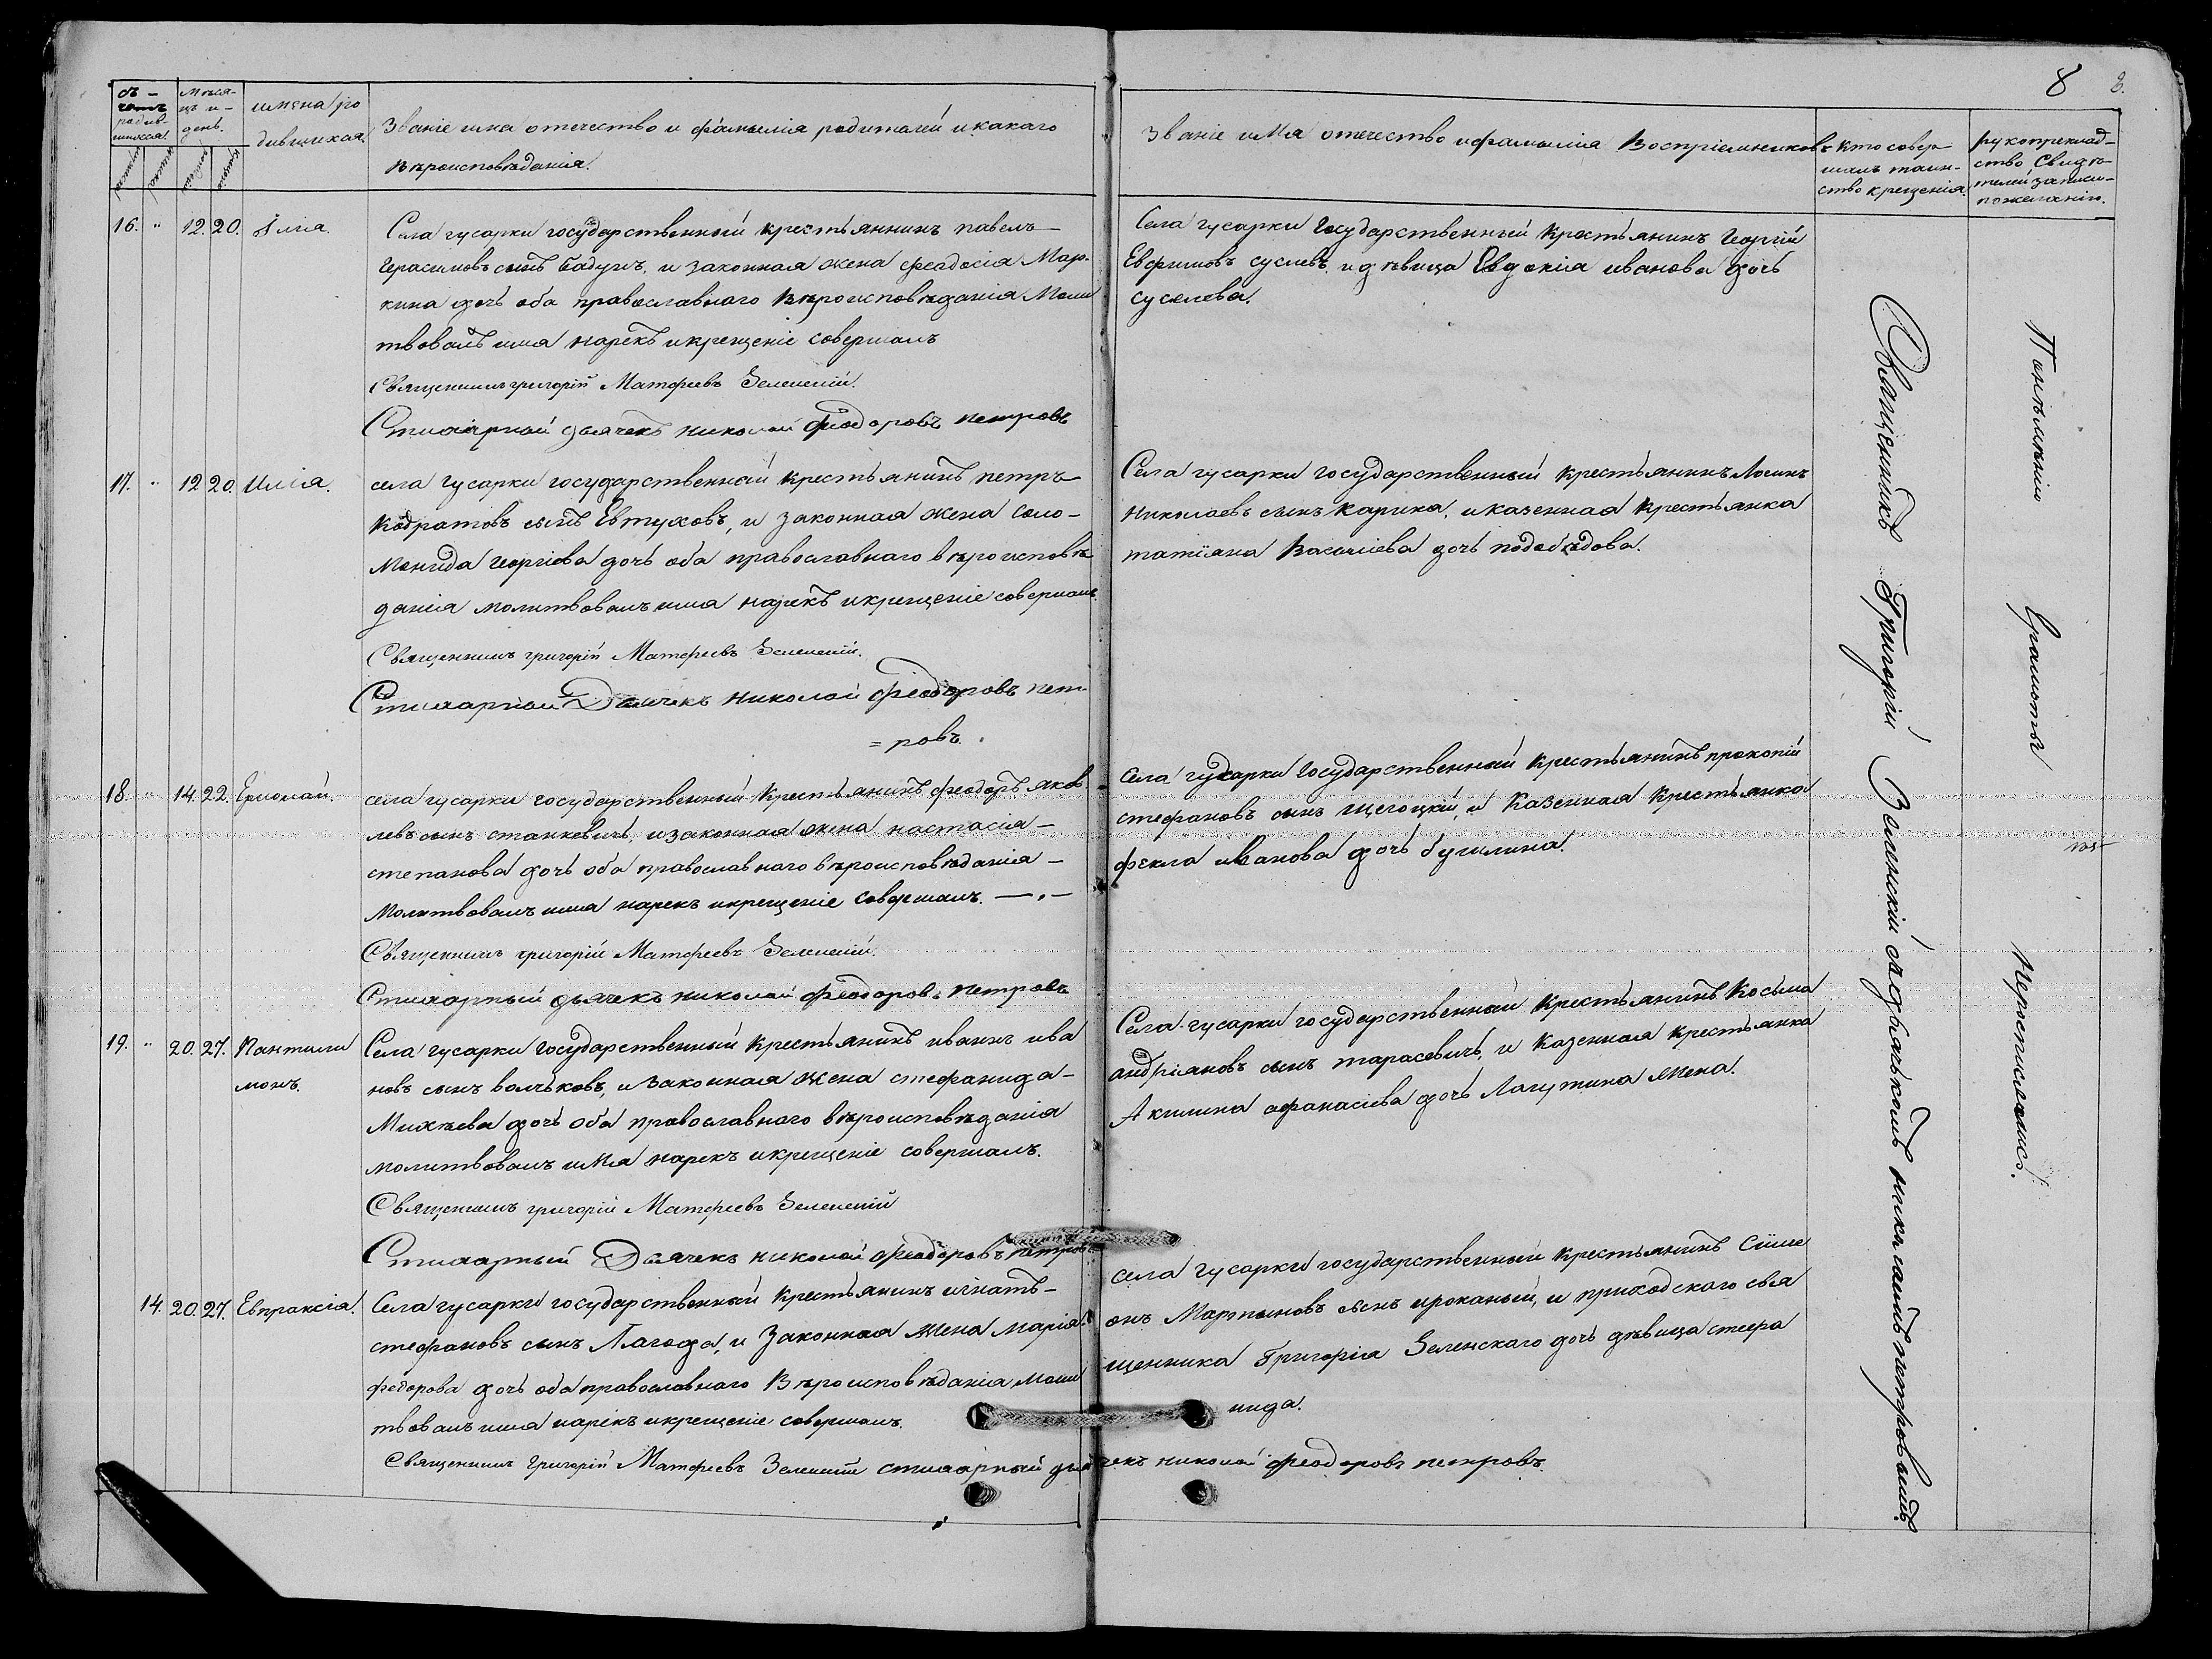 8
Счетъ родившихся.
Мѣсяцъ и день.
имена родившихся.
Званіе имя отечество и фамилія родителей и какаго
вѣроисповѣданія.
Званіе имя отечество и фамилія Воспріемниковъ
Кто совер-
шалъ таин-
ство крещенія.
рукоприклад-
ство Свидѣ-
телей записи
по желанію.
16. " 12. 20. Iлія.
Села гусарки государственный крестьяннинъ павелъ
Герасимовъ сынъ Бадунъ, и законная жена феодосія Мар-
кина дочь оба православнаго вѣроисповѣданія Моли
твовалъ имя нарекъ и крещеніе совершалъ
Священникъ григорій Матфеевъ Зеленскій.
Стихарной дьячекъ николай феодоровъ петровъ
Села гусарки государственный крестьянинъ Георгій
Евфимовъ суслевъ, и дѣвица Евдокія иванова дочь
суслева.
17. " 12 20. Илія.
села гусарки государственный крестьянинъ петръ
Кодратовъ сынъ Евтуховъ, и законная жена Соло-
монида Георгіева дочь оба православнаго вѣроисповѣ
данія молитвовалъ имя нарекъ и крещеніе совершалъ
Священникъ григорій Матфеевъ Зеленскій.
Стихарной Дьячекъ николай феодоровъ пет-
=ровъ.
Села гусарки государственный крестьянинъ Логинъ
николаевъ сынъ карика, и казенная крестьянка
татіяна Василіева дочь подобѣдова.
18. " 14. 22. Ермолай.
села гусарки государственный крестьянинъ феодоръ яков
левъ сынъ станкевичъ, и законная жена настасія
степанова дочь оба православнаго вѣроисповѣданія
Молитвовалъ имя нарекъ и крещеніе совершалъ.
Священникъ григорій Матфеевъ Зеленскій.
Стихарный дьячекъ николай феодоровъ петровъ
Села гусарки государственный крестьянинъ прокопій
стефановъ сынъ щегоцкій, и Казенная крестьянка
фекла иванова дочь бугилина.
19. " 20. 27. Пантили
монъ.
Села гусарки государственный крестьянинъ иванъ ива
новъ сынъ волчковъ, и законная жена стефанида
Михѣева дочь оба православнаго вѣроисповѣданія
молитвовалъ имя нарекъ и крещеніе совершалъ.
Священникъ григорій Матфеевъ Зеленскій
Стихарный Дьячекъ николай феодоровъ петровъ
Села гусарки государственный крестьянинъ Косьма
андріановъ сынъ тарасевичъ, и Казенная крестьянка
Акилина афанасіева дочь Лагутина жена.
14. 20. 27. Евпраксія.
Села гусарки государственный крестьянинъ игнатъ
стефановъ сынъ Лагода, и Законная жена марія
федорова дочь оба православнаго Вѣроисповѣданія моли
твовалъ имя нарекъ и крещеніе совершалъ.
села гусарки государственный крестьянинъ Симе
онъ Мартыновъ сынъ ироканый, и приходскаго свя
щенника Григорія Зеленскаго дочь дѣвица стефа
нида.
Священникъ Григорій Матфеевъ Зеленскій стихарный дьячекъ николай феодоровъ петровъ.
Священникъ Григорій Зеленскій съ дьячькомъ николаемъ петровымъ.
грамоты